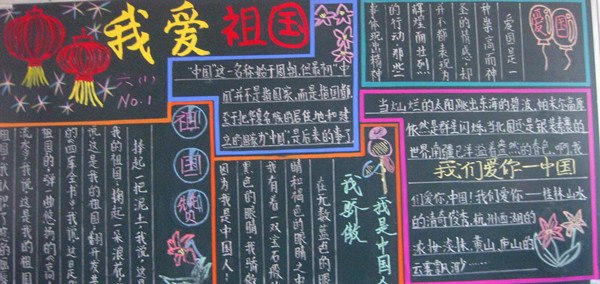 我爱祖国
六(1)
No.1
"中国"这一名称始于周朝,但最初"中
国"并不是指国家,而是指国都
爱国是一
种崇高而神
圣的情感,却
并不都表现为
辉煌而壮烈
的行动,那些
爱国
当灿烂的太阳跳出东海的碧波,帕米尔高原
依然是群星闪烁,当北国还是银装素裹的
世界,南疆已洋溢着盎然的春色。啊,我
我们爱你—中国
们爱你,中国!我们爱你—桂林山水
的清奇俊秀,杭州西湖的
浓妆淡抹,黄山、庐山的
云雾飘渺……
祖国赞
捧起一把泥土,我说,这是
我的祖国;掬起一朵浪花,
这是我的祖国;翻开
的《四库全书》,我说,
流水,我说,这是我的
祖国的
我骄傲
我是中国人
在无数蓝色的眼
睛和褐色的眼睛之中
我有着一双宝石般的
黑色的眼睛,我骄傲
因为我是中国人!